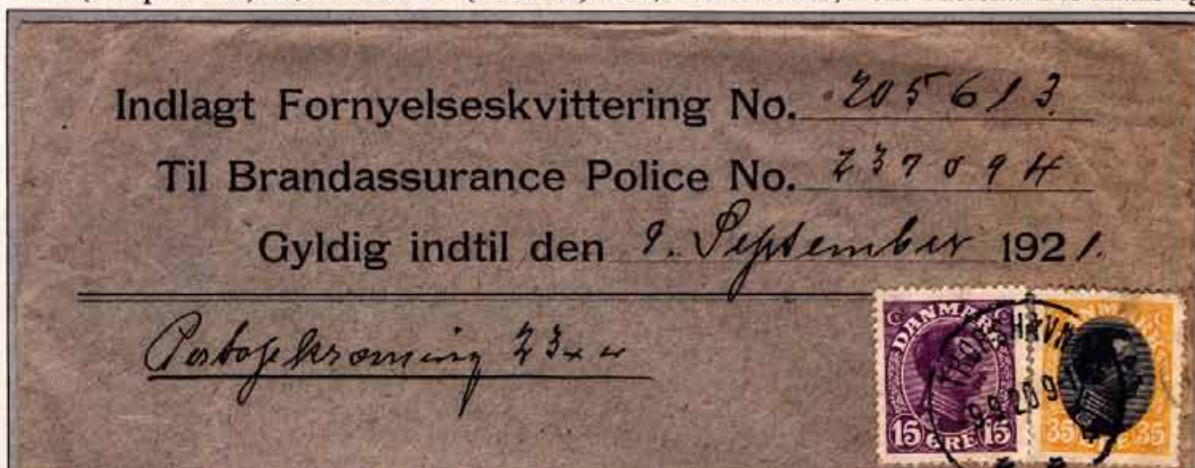 Indlagt Fornyelseskvittering No. 205613.
Til Brandassurance Police No. 237094
Gyldig indtil den 9. September 1921.
23
DANMARK
15 ØRE 15
THORSHAVN
9.9.20 9
35 35